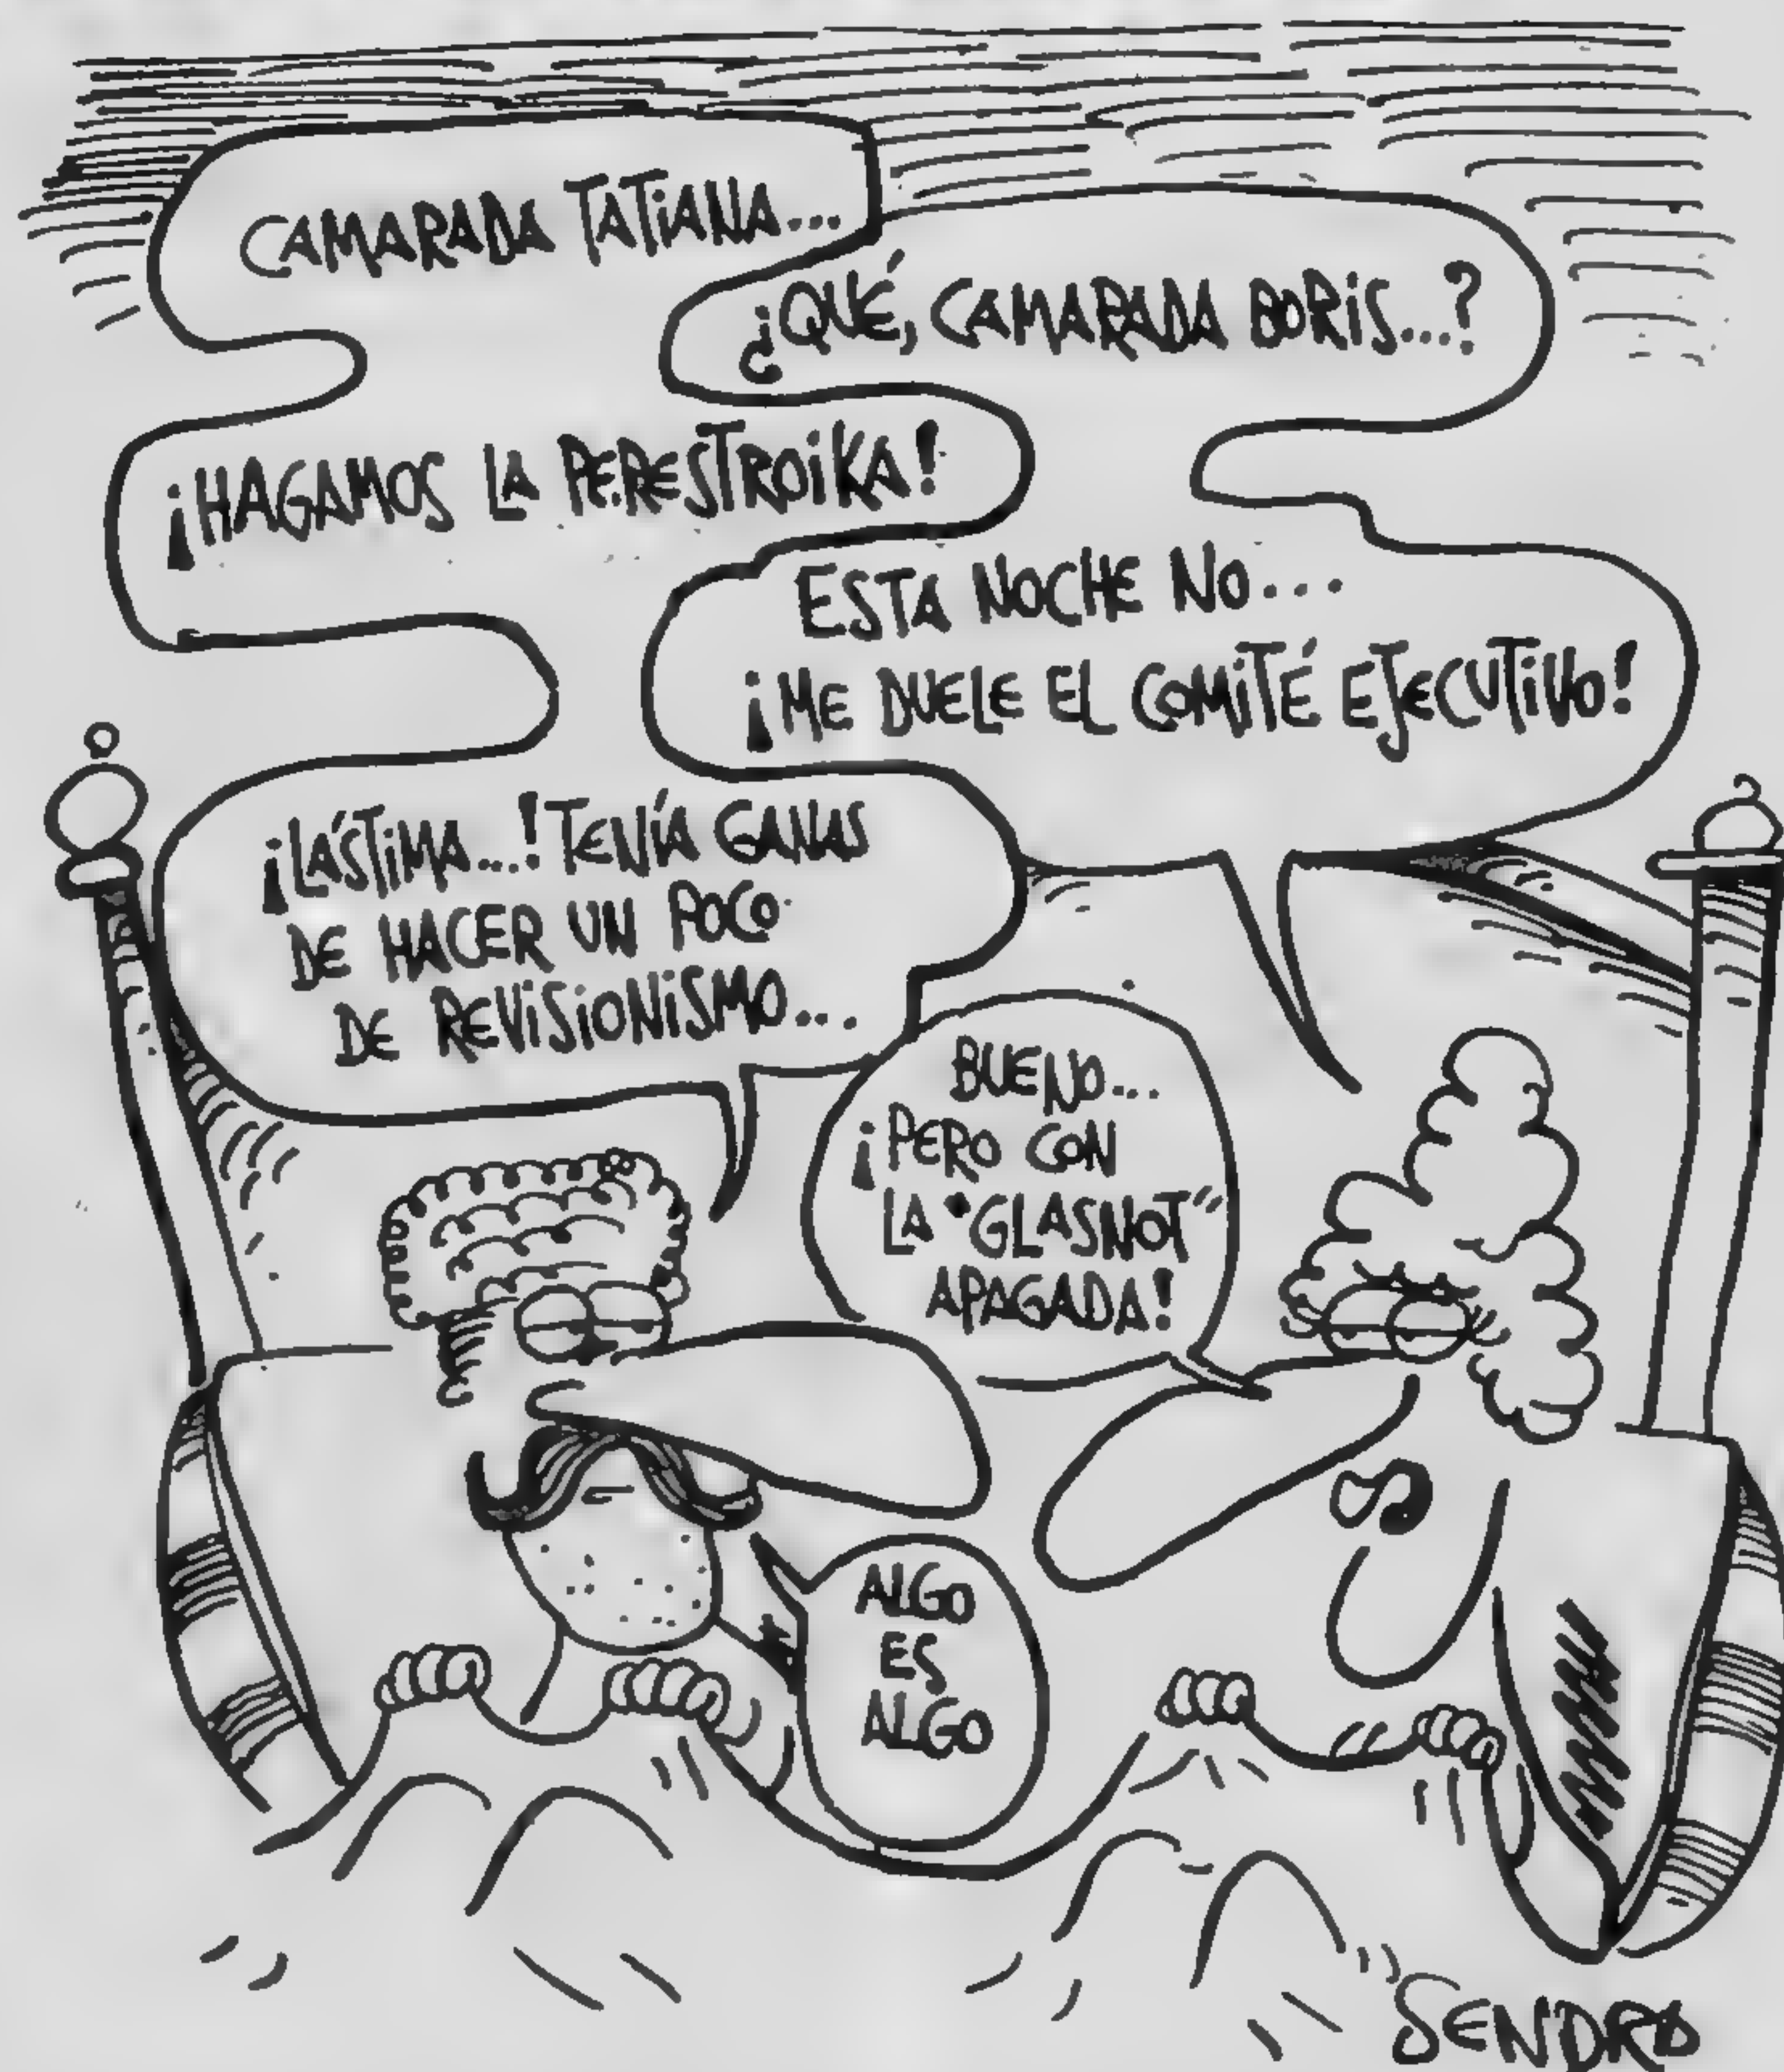 CAMARADA TATIANA...
¿QUÉ, CAMARADA BORIS...?
¡HAGAMOS LA PERESTROIKA!
ESTA NOCHE NO...
¡ME DUELE EL COMITÉ EJECUTIVO!
¡LÁSTIMA...! TENÍA GANAS
DE HACER UN POCO
DE REVISIONISMO...
BUENO...
¡PERO CON
LA "GLASNOT"
APAGADA!
ALGO
ES
ALGO
SENDRA